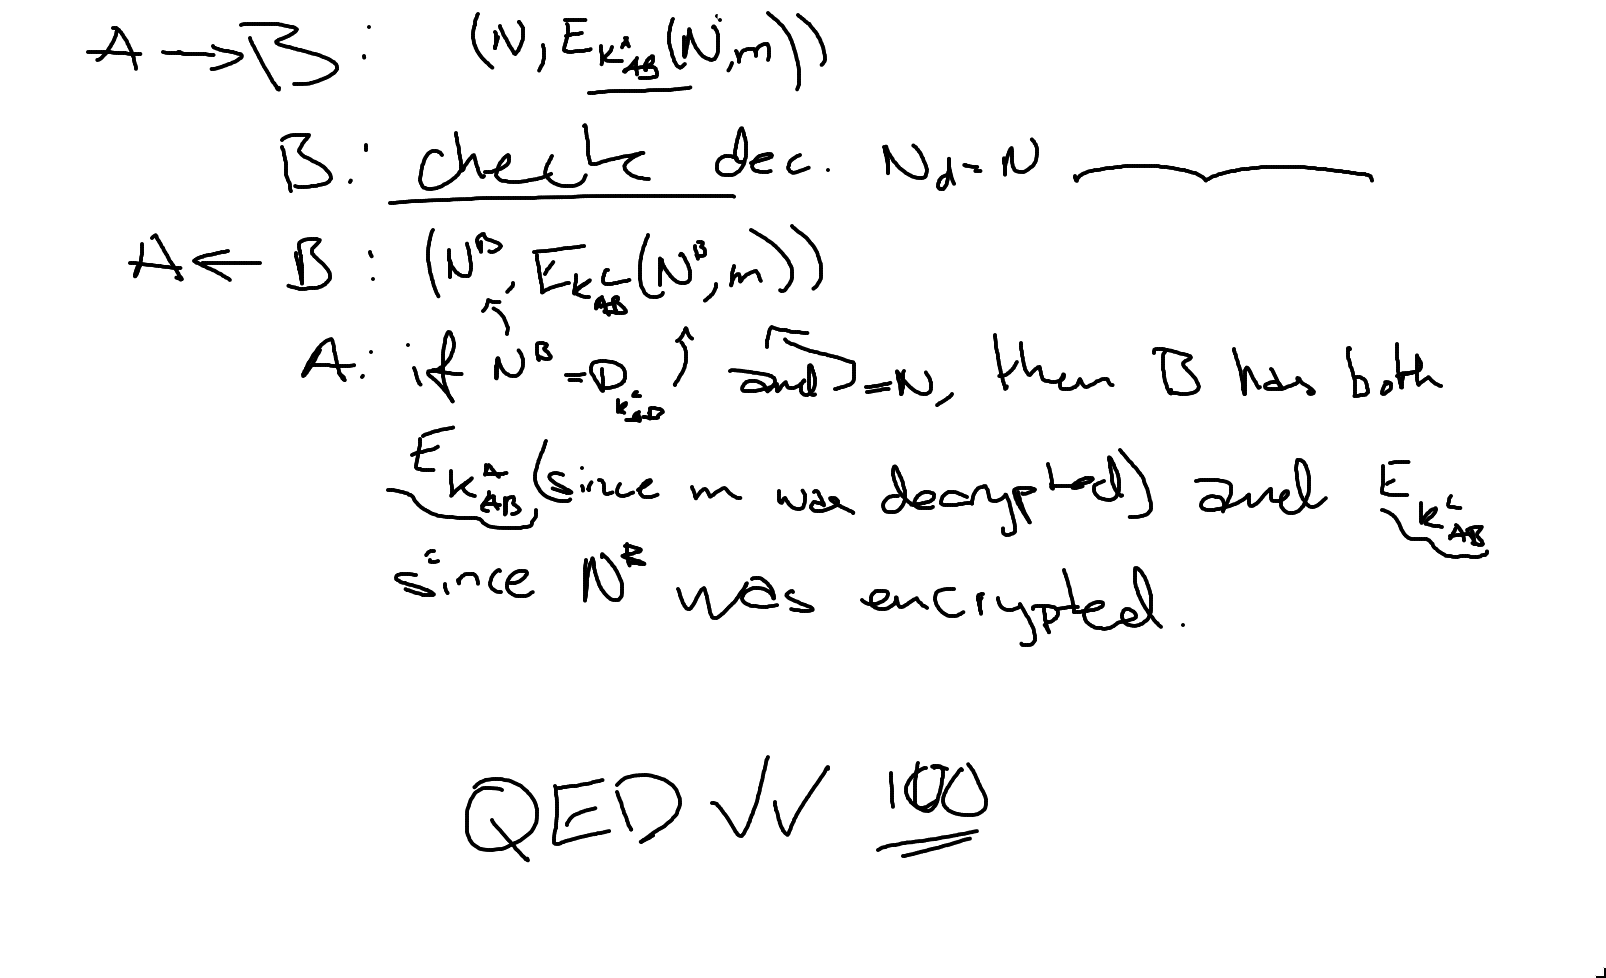 A → B : (N, E_{K^A_{AB}}(N, m))
B: check dec. N_d = N
A ← B : (N^B, E_{K^C_{AB}}(N^B, m))
A: if N^B = D_{K^C_{AB}} and = N, then B has both
E_{K^A_{AB}} (since m was decrypted) and E_{K^C_{AB}}
since N^B was encrypted.
QED ✓✓ 100